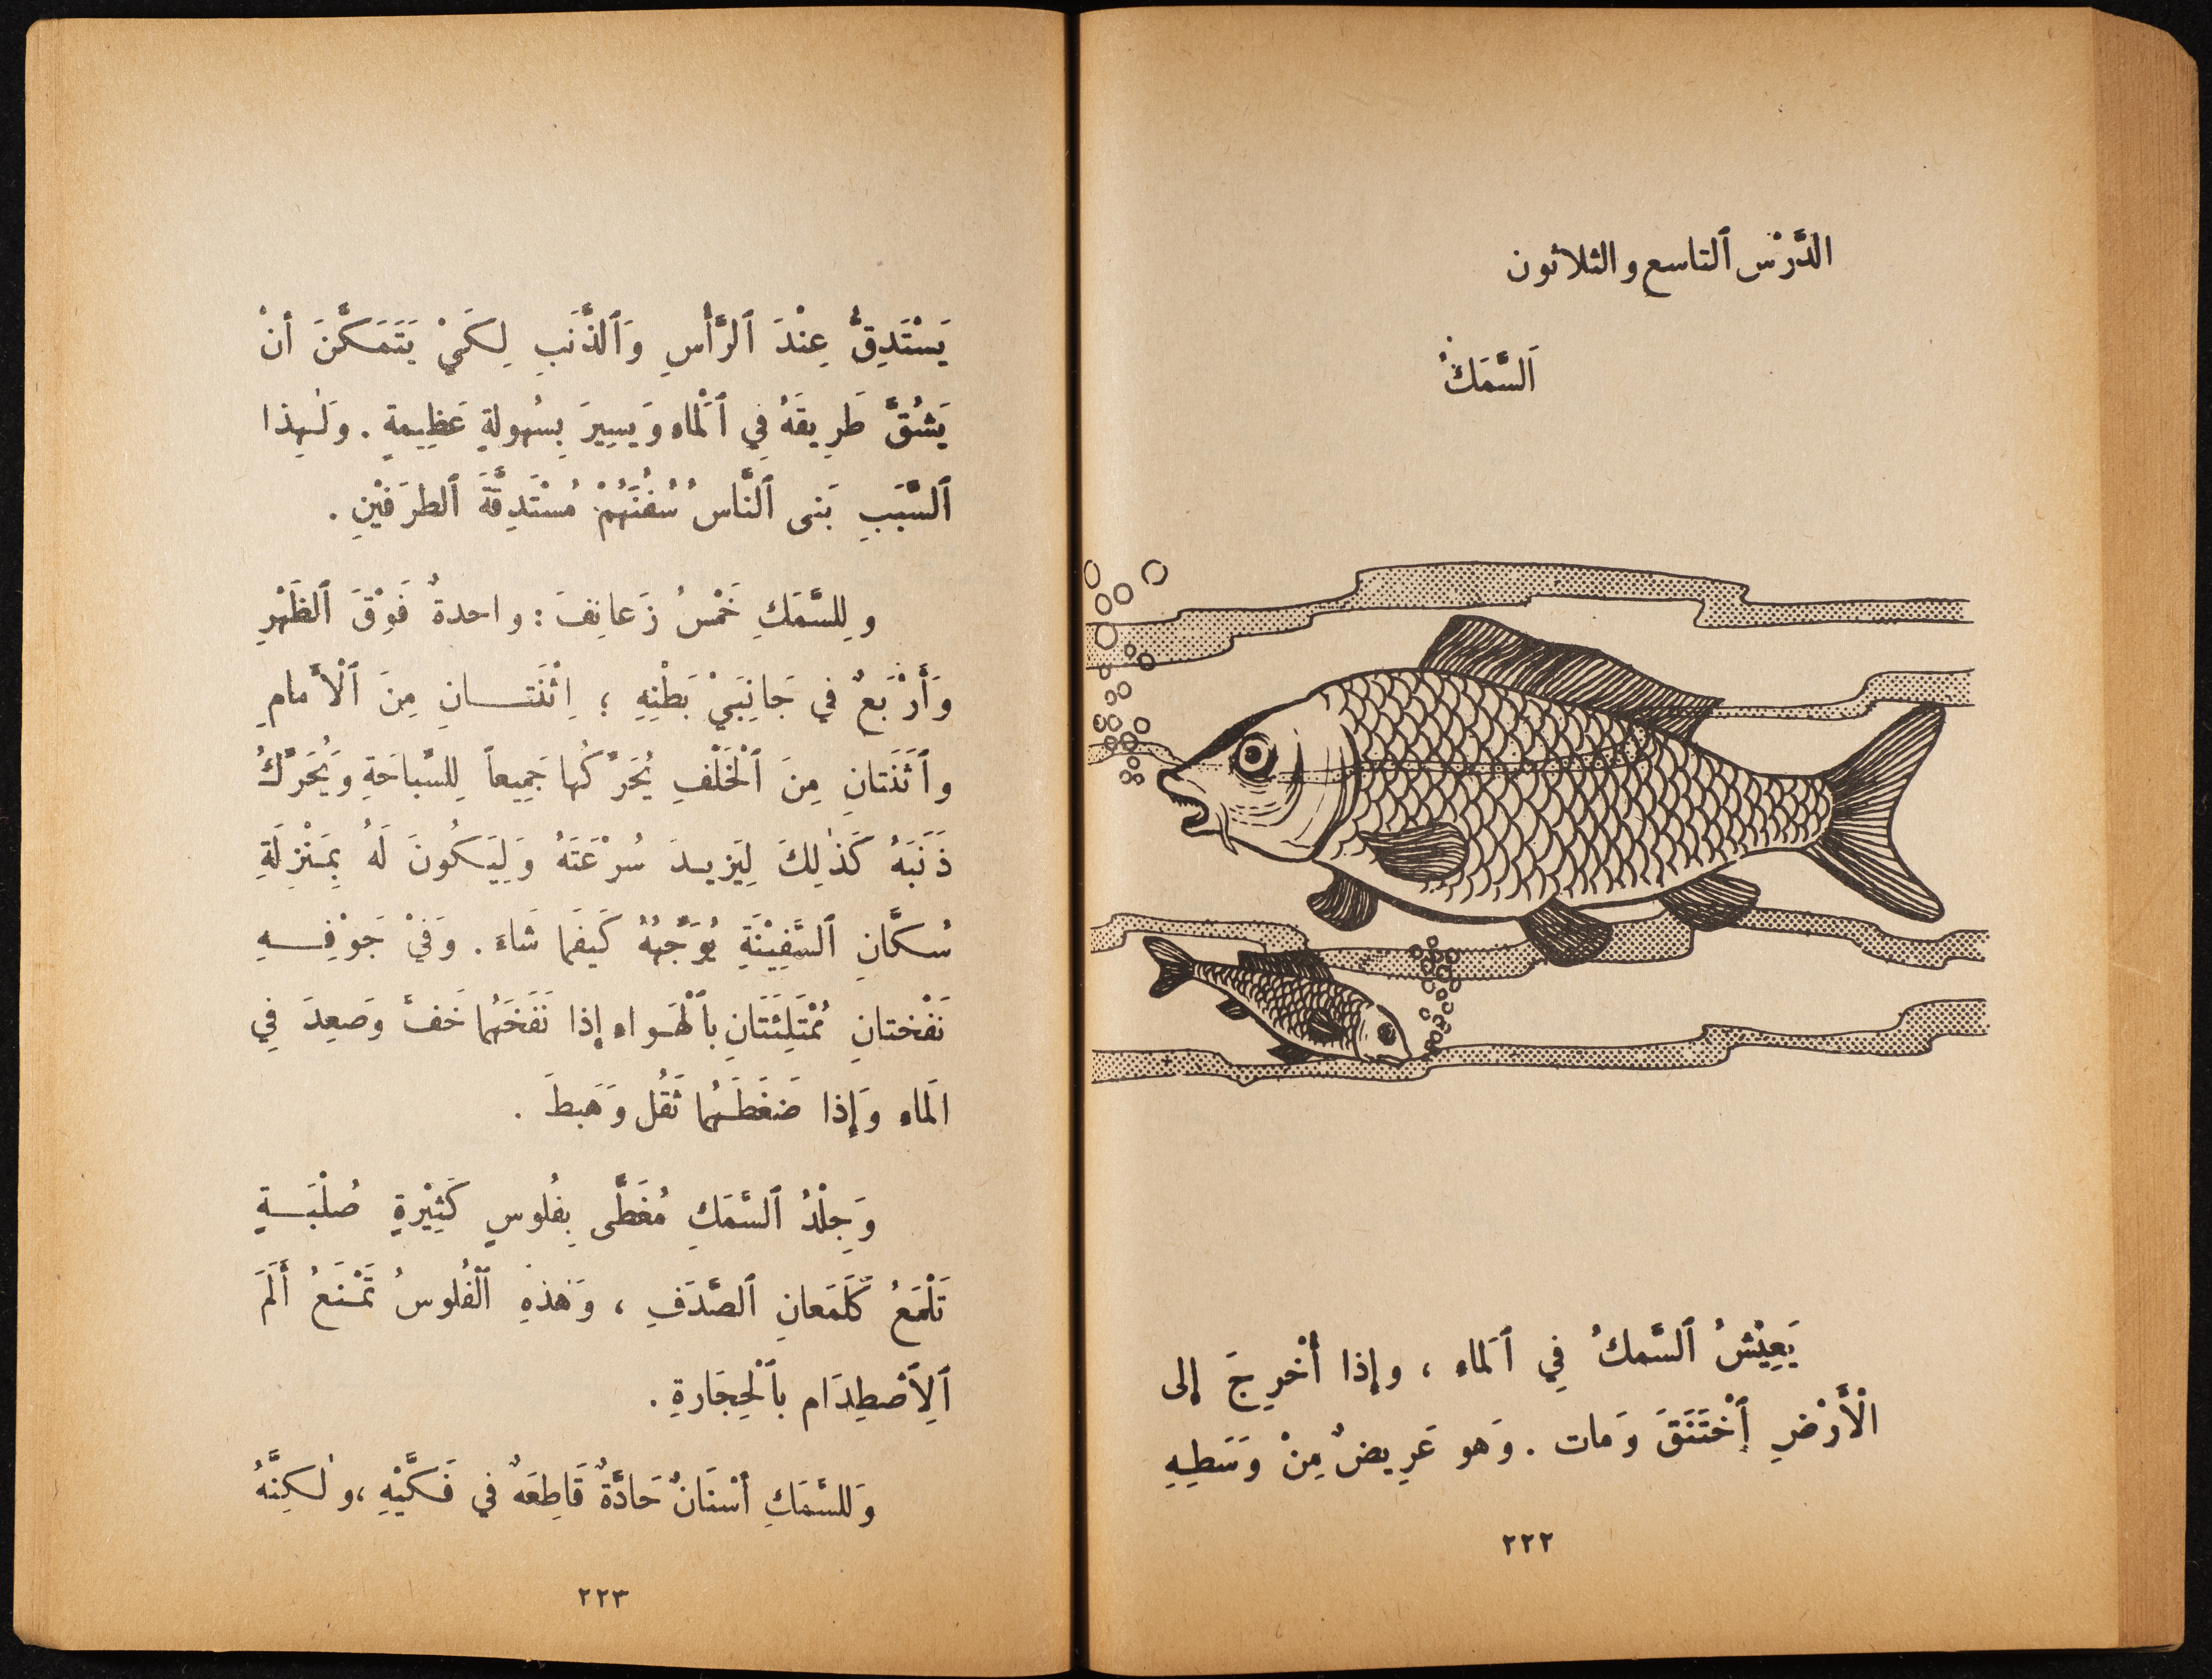 الدَّرْس ٱلتاسع والثلاثون
اَلسَّمَكُ
يَعِيْشُ ٱلسَّمكُ فِي ٱلَماء ، وإذا أُخْرِجَ إلى
الْأَرْضِ ٱخْتَنَقَ وَمات . وَهو عَرِيضٌ مِنْ وَسَطِهِ
٢٢٢
يَسْتَدِقُّ عِنْدَ ٱلرَّأْسِ وَٱلذَّنَبِ لِكَيْ يَتَمَكَّنَ أنْ
يَشُقَّ طَرِيقَهُ فِي ٱلْماء وَيسِيرَ بِسُهولةٍ عَظِيمةٍ . وَلِهذا
ٱلسَّبَبِ بَنى ٱلنَّاسُ سُفُنَهُمْ مُسْتَدِقَّةَ ٱلطرَفَيْنِ .
ولِلسَّمَكِ خَمْسُ زَعانِفَ : واحدةٌ فَوْقَ ٱلظَهْرِ
وَأَرْبَعٌ في جَانِبَيْ بَطْنِهِ ؛ اِثْنَتــانِ مِنَ ٱلْأَمامِ
وٱثْنَتانِ مِنَ ٱلْخَلْفِ يُحَرِّكُها جَمِيعاً لِلسِّباحَةِ وَيُحَرِّكُ
ذَنَبَهُ كَذٰلِكَ لِيَزيــدَ سُرْعَتَهُ وَلِيَكُونَ لَهُ بِمَنْزِلَةِ
سُكَّانِ ٱلسَّفِيْنَةِ يُوَجِّهُهُ كَيفَما شَاءَ . وَفيْ جَوْفِــهِ
نَفْختانِ مُمْتَلِئَتَانِ بٱلْهَواءِ إذا نَفَخَهُما خَفَّ وَصَعِدَ فِي
الَماءِ وَإِذا ضَغَطَــهُما ثَقُل وَهَبطَ .
وَجِلْدُ ٱلسَّمَكِ مُغَطَّى بِفُلوسٍ كَثِيْرةٍ صُلْبَــةٍ
تَلْمَعُ كَلَمَعانِ ٱلصَّدَفِ ، وَهٰذهِ ٱلْفُلوسُ تَمْـنَعُ أَلَمَ
ٱلِٱصْطِدَام بٱلْحِجَارةِ .
وَللسَّمَكِ أسْنَانٌ حَادَّةٌ قَاطِعَهٌ في فَكَّيْهِ ،ولٰكِنَّهُ
٢٢٣